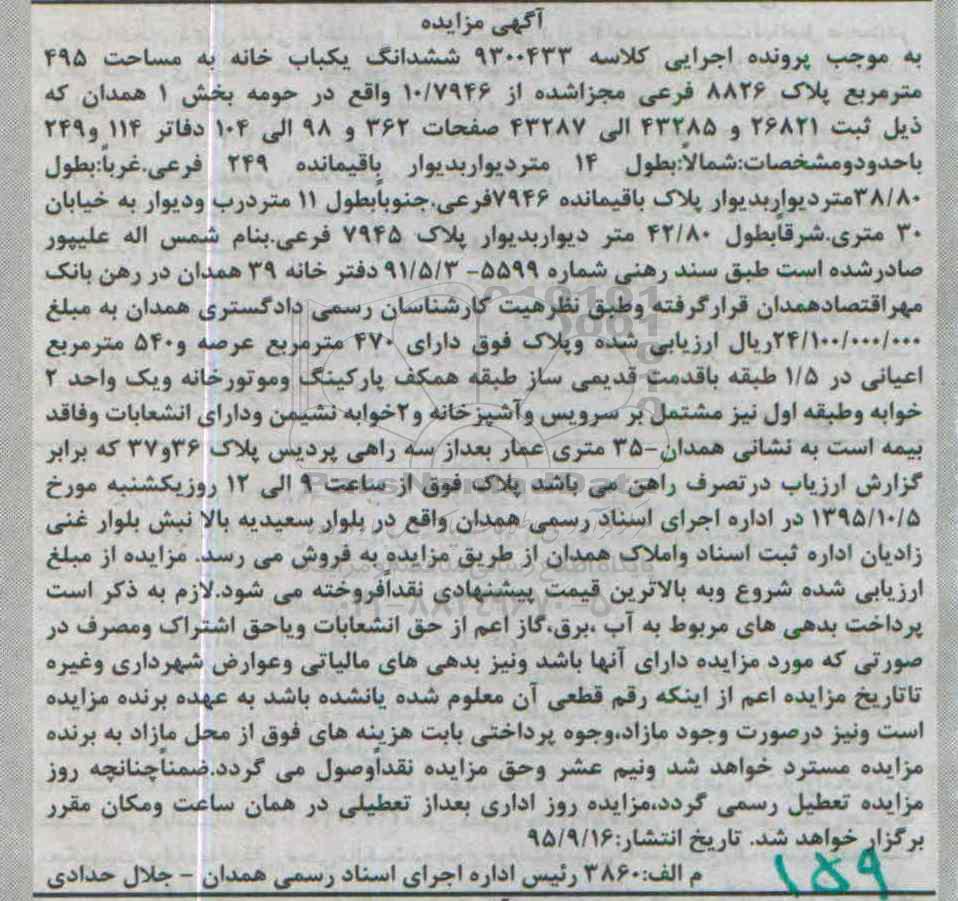 آگهی مزایده
به موجب پرونده اجرایی کلاسه ۹۳۰۰۴۳۳ ششدانگ یکباب خانه به مساحت ۴۹۵
مترمربع پلاک ۸۸۲۶ فرعی مجزاشده از ۱۰/۷۹۴۶ واقع در حومه بخش ۱ همدان که
ذیل ثبت ۲۶۸۲۱ و ۴۳۲۸۵ الی ۴۳۲۸۷ صفحات ۳۶۲ و ۹۸ الی ۱۰۴ دفاتر ۱۱۴ و۲۴۹
باحدودومشخصات:شمالاً:بطول ۱۴ متردیواربدیوار باقیمانده ۲۴۹ فرعی.غرباً:بطول
۳۸/۸۰متردیواربدیوار پلاک باقیمانده ۷۹۴۶فرعی.جنوباًبطول ۱۱ متردرب ودیوار به خیابان
۳۰ متری.شرقاًبطول ۴۲/۸۰ متر دیواربدیوار پلاک ۷۹۴۵ فرعی.بنام شمس اله علیپور
صادرشده است طبق سند رهنی شماره ۵۵۹۹- ۹۱/۵/۳ دفتر خانه ۳۹ همدان در رهن بانک
مهراقتصادهمدان قرارگرفته وطبق نظرهیت کارشناسان رسمی دادگستری همدان به مبلغ
۲۴/۱۰۰/۰۰۰/۰۰۰ریال ارزیابی شده وپلاک فوق دارای ۴۷۰ مترمربع عرصه و۵۴۰ مترمربع
اعیانی در ۱/۵ طبقه باقدمت قدیمی ساز طبقه همکف پارکینگ وموتورخانه ویک واحد ۲
خوابه وطبقه اول نیز مشتمل بر سرویس وآشپزخانه و۲خوابه نشیمن ودارای انشعابات وفاقد
بیمه است به نشانی همدان-۳۵ متری عمار بعداز سه راهی پردیس پلاک ۳۶و۳۷ که برابر
گزارش ارزیاب درتصرف راهن می باشد پلاک فوق از ساعت ۹ الی ۱۲ روزیکشنبه مورخ
۱۳۹۵/۱۰/۵ در اداره اجرای اسناد رسمی همدان واقع در بلوار سعیدیه بالا نبش بلوار غنی
زادیان اداره ثبت اسناد واملاک همدان از طریق مزایده به فروش می رسد. مزایده از مبلغ
ارزیابی شده شروع وبه بالاترین قیمت پیشنهادی نقدافروخته می شود.لازم به ذکر است
پرداخت بدهی های مربوط به آب ،برق،گاز اعم از حق انشعابات ویاحق اشتراک ومصرف در
صورتی که مورد مزایده دارای آنها باشد ونیز بدهی های مالیاتی وعوارض شهرداری وغیره
تاتاریخ مزایده اعم از اینکه رقم قطعی آن معلوم شده یانشده باشد به عهده برنده مزایده
است ونیز درصورت وجود مازاد،وجوه پرداختی بابت هزینه های فوق از محل مازاد به برنده
مزایده مسترد خواهد شد ونیم عشر وحق مزایده نقداًوصول می گردد.ضمناًچنانچه روز
مزایده تعطیل رسمی گردد،مزایده روز اداری بعداز تعطیلی در همان ساعت ومکان مقرر
برگزار خواهد شد. تاریخ انتشار:۹۵/۹/۱۶
م الف:۳۸۶۰ رئیس اداره اجرای اسناد رسمی همدان - جلال حدادی
۱۵۹